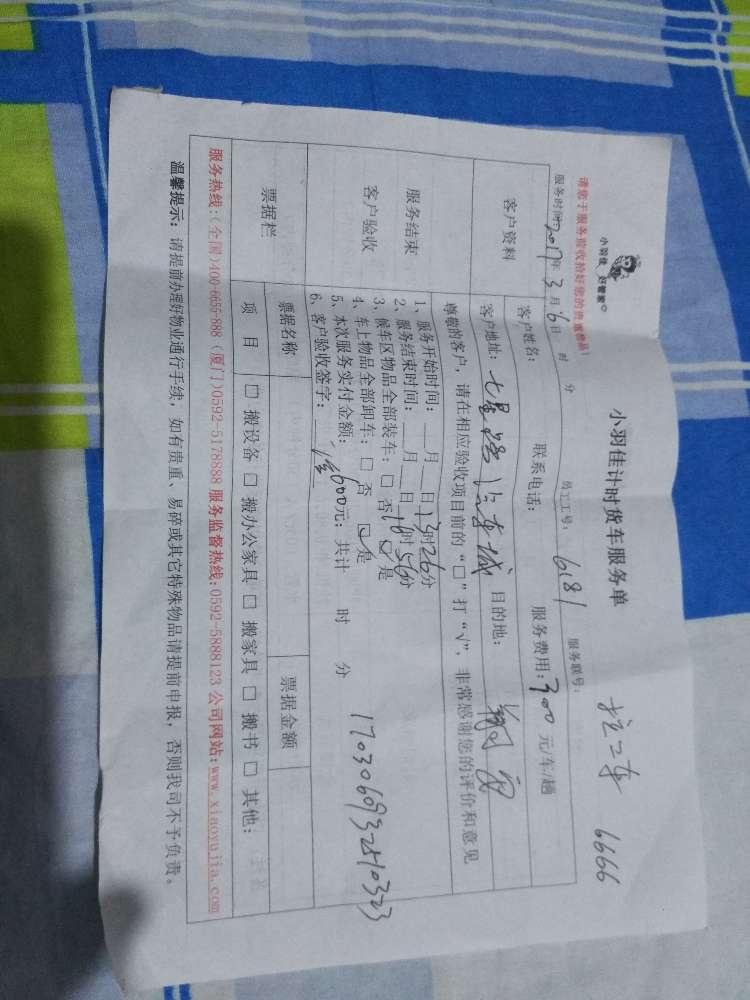 小羽佳 好管家
请您于服务验收拾好您的贵重物品!
小羽佳计时货车服务单
拉二车 6666
服务时间: 2017年 3月 6日 时 分 员工工号: 6181 服务联号:
客户资料
客户姓名: 联系电话: 服务费用: 300 元/车/趟
客户地址: 七星路汽车城 目的地: 翔安
尊敬的客户,请在相应验收项目前的“□”打“√”,非常感谢您的评价和意见
服务结束
客户验收
1、服务开始时间: 月 日 13时26分
2、服务结束时间: 月 日 16时56分
3、候车区物品全部装车: □ 否 ☑ 是
4、车上物品全部卸车: □ 否 ☑ 是
5、本次服务实付金额: 600元; 共计 时 分
6、客户验收签字:
17030669325810323
票据栏
票据名称 票据金额
项目 □ 搬设备 □ 搬办公家具 □ 搬家具 □ 搬书 □ 其他:
服务热线:(全国)400-6655-888 (厦门)0592-5178888 服务监督热线:0592-5888123 公司网站:www.xiaoyujia.com
温馨提示: 请提前办理好物业通行手续,如有贵重、易碎或其它特殊物品请提前申报,否则我司不予负责。